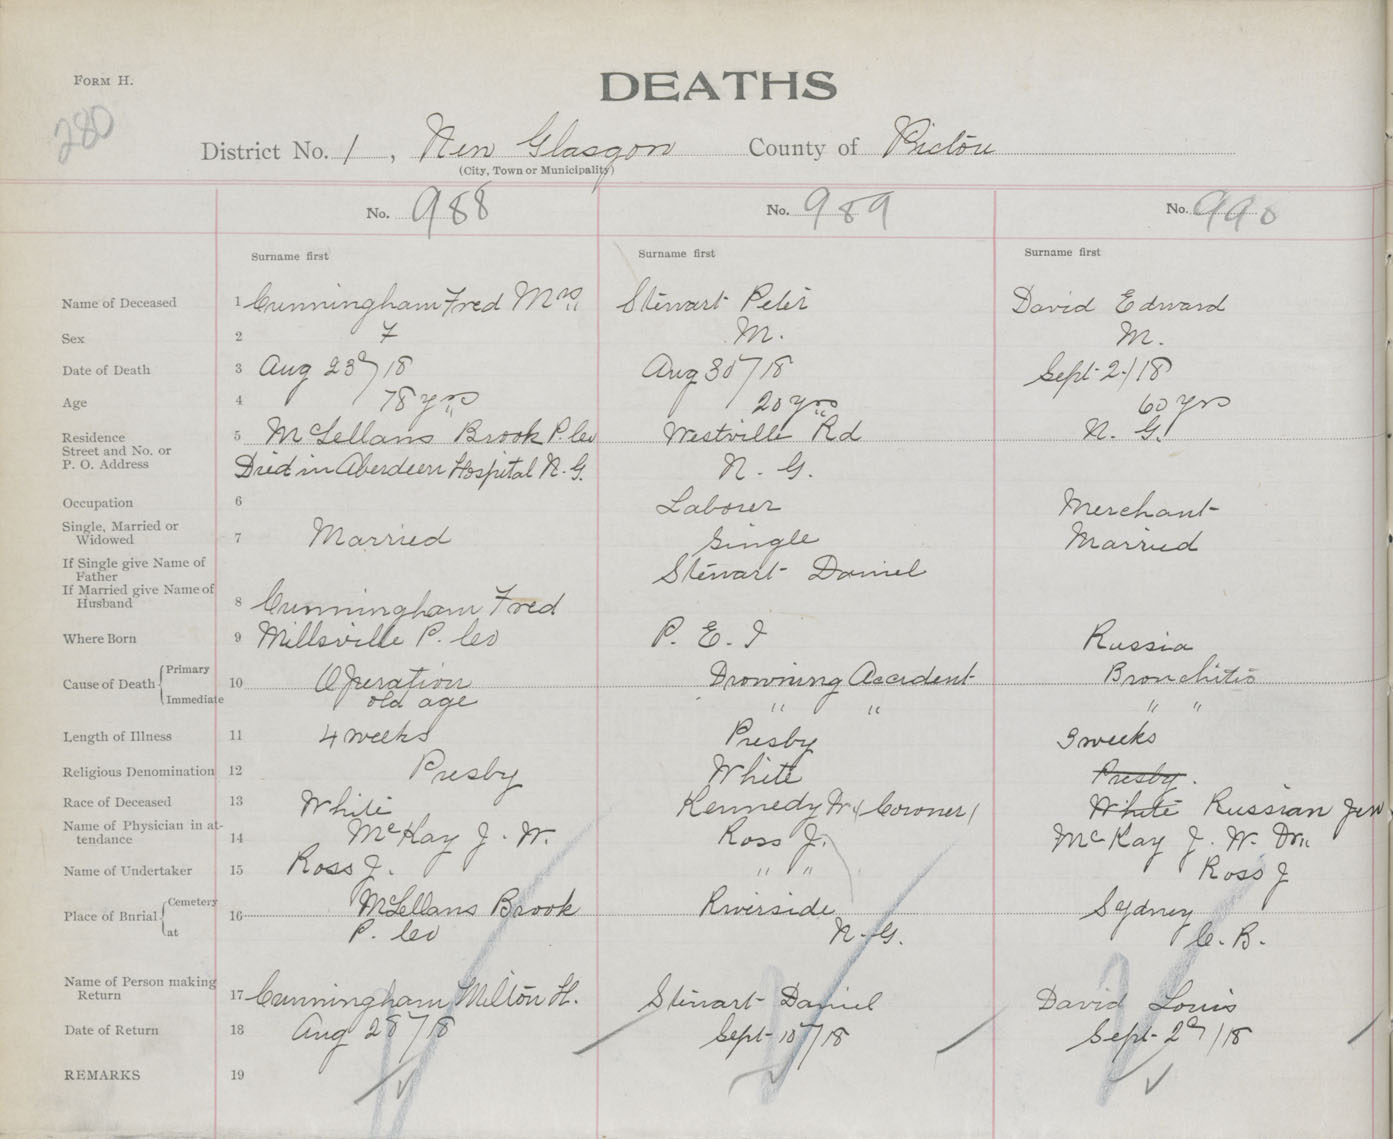 FORM H.
DEATHS
280
District No. 1, New Glasgow County of Pictou
(City, Town or Municipality)
No. 988 No. 989 No. 990
Surname first Surname first Surname first
Name of Deceased 1 Cunningham Fred Mrs Stewart Peter David Edward
Sex 2 F M. M.
Date of Death 3 Aug 23d/18 Aug 30/18 Sept 2/18
Age 4 78 yrs 20 yrs 60 yrs
Residence 5 McLellans Brook P. Co Westville Rd N. G.
Street and No. or
P. O. Address Died in Aberdeen Hospital N. G. N. G.
Occupation 6 Laborer Merchant
Single, Married or
Widowed 7 Married Single Married
If Single give Name of
Father Stewart Daniel
If Married give Name of
Husband 8 Cunningham Fred
Where Born 9 Millsville P. Co P. E. I Russia
Cause of Death { Primary 10 Operation Drowning Accident Bronchitis
Immediate old age " " " "
Length of Illness 11 4 weeks Presby 3 weeks
Religious Denomination 12 Presby White Presby.
Race of Deceased 13 White Kennedy W. (Coroner) White Russian Jew
Name of Physician in at-
tendance 14 McKay J. W. Ross J. McKay J. W. Dr.
Name of Undertaker 15 Ross J. " " Ross J
Place of Burial { Cemetery 16 McLellans Brook Riverside Sydney
at P. Co N. G. C. B.
Name of Person making
Return 17 Cunningham Milton H. Stewart Daniel David Louis
Date of Return 18 Aug 28/18 Sept 10/18 Sept 2d/18
REMARKS 19